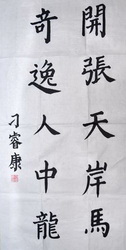 開張天岸馬
奇逸人中龍
刁睿康